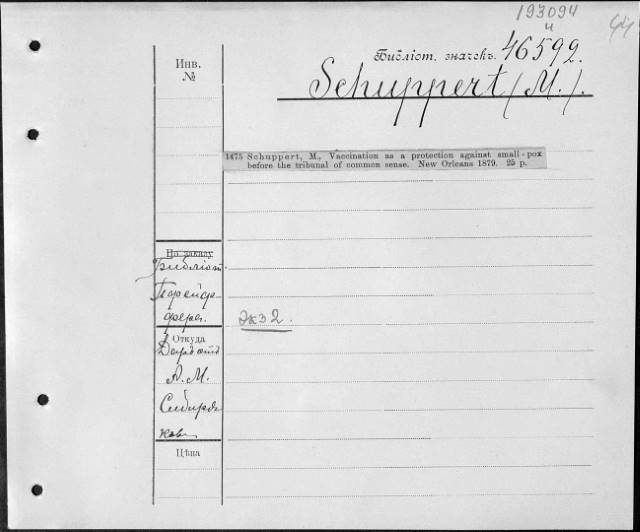 193094
и
Инв.
№
Библіот. значекъ. 46592.
Schuppert (M.).
1475 Schuppert, M., Vaccination as a protection against small-pox
before the tribunal of common sense. New Orleans 1879. 25 p.
На заказу
Библіот.
Пфейф-
фера.
Экз 2.
Откуда
А. М.
Сибиря-
ков
Цѣна